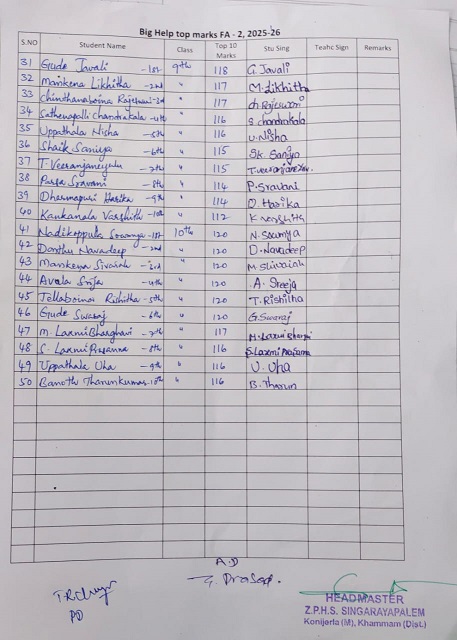 Big Help top marks FA - 2, 2025-26
S.NO Student Name Class Top 10 Marks Stu Sing Teahc Sign Remarks
31 Gude Javali -1st 9th 118 G. Javali
32 Mankena Likhitha -2nd " 117 M. Likhitha
33 Chinthanaboina Rajeswari -3rd " 117 ch. Rajeswari
34 Sathenapalli Chandrakala -4th " 116 S. chandrakala
35 Uppathala Nisha -5th " 116 U. Nisha
36 Shaik Saniya -6th " 115 Sk. Saniya
37 T. Veeranjaneyulu -7th " 115 T. veeranjaneyulu
38 Parsa Sravani -8th " 114 P. Sravani
39 Dharmapuri Harika -9th " 114 D. Harika
40 Kankanala Varshith -10th " 112 K. varshith
41 Nadikoppula Sowmya -1st 10th 120 N. Sowmya
42 Donthu Navadeep -2nd " 120 D. Navadeep
43 Mankena Sivaiah -3rd " 120 M. Shivaiah
44 Avala Srija -4th " 120 A. Sreeja
45 Tellaboina Rishitha -5th " 120 T. Rishitha
46 Gude Swaraj -6th " 120 G. Swaraj
47 M. Laxmi Bharghavi -7th " 117 M. Laxmi
48 S. Laxmi Prasanna -8th " 116 S. Laxmi Prasanna
49 Uppathala Uha -9th " 116 U. Uha
50 Banoth Tharunkumar 10th " 116 B. Tharun
A.D
G. Prasad.
PD
HEADMASTER
Z.P.H.S. SINGARAYAPALEM
Konijerla (M), Khammam (Dist.)